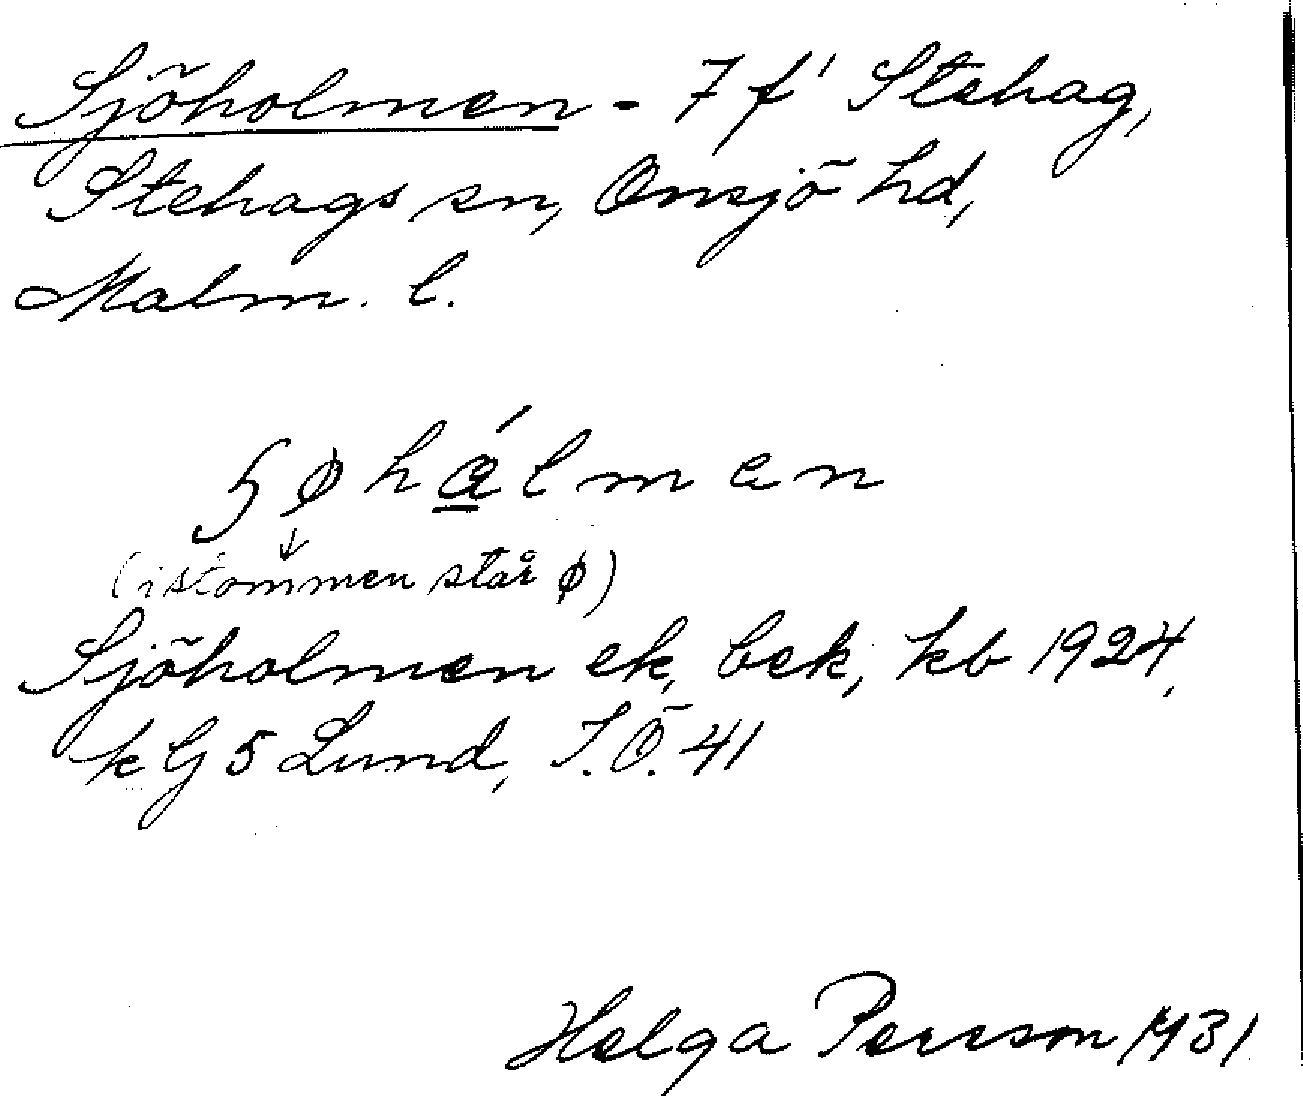 Sjöholmen - 7 f' Stehag,
Stehags sn, Onsjö hd,
Malm. l.
ʃøhálmen
(i stommen står ø)
Sjöholmen ek, bek, kb 1924,
k G 5 Lund, J.Ö. 41
Helga Persson 1931